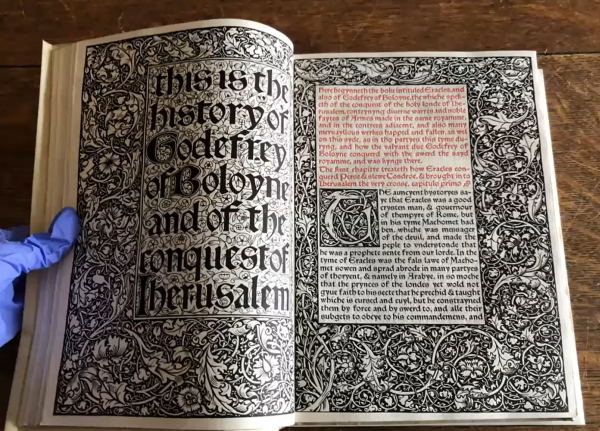 this is the
history of
Godefrey
of Boloyne
and of the
conquest of
Iherusalem
Here begynneth the boke intituled Eracles, and
also of Godefrey of Boloyne, the whiche spek-
eth of the conquest of the holy londe of Ihe-
rusalem, conteynyng diuerse warres and noble
faytes of Armes made in the same royaume,
and in the contrees adiacent, and also many
meruayllous werkes happed and fallen, as wel
on this syde, as in tho partyes this tyme du-
ryng, and how the valyant duc Godefrey of
Boloyne conquerd with the swerd the sayd
royamme, and was kynge there.
The first chapitre treateth how Eracles con-
querd Perce & slewe Cosdroe, & brought in to
Iherusalem the very crosse, capitulo primo
THE auncyent hystoryes sa-
ye that Eracles was a good
crysten man, & gouernour
of thempyre of Rome, but
in his tyme Machomet had
ben, whiche was messager
of the deuil, and made the
peple to vnderstonde that
he was a prophete sente from our lorde. In the
tyme of Eracles was the fals lawe of Macho-
met sowen and sprad abrode in many partyes
of thoryent, & namely in Arabye, in so moche
that the prynces of the londes yet wold not
gyue faith to his secte that he prechid & taught
whiche is cursed and euyl, but he constrayned
them by force and by swerd to, and alle their
subgets to obeye to his commandemens, and